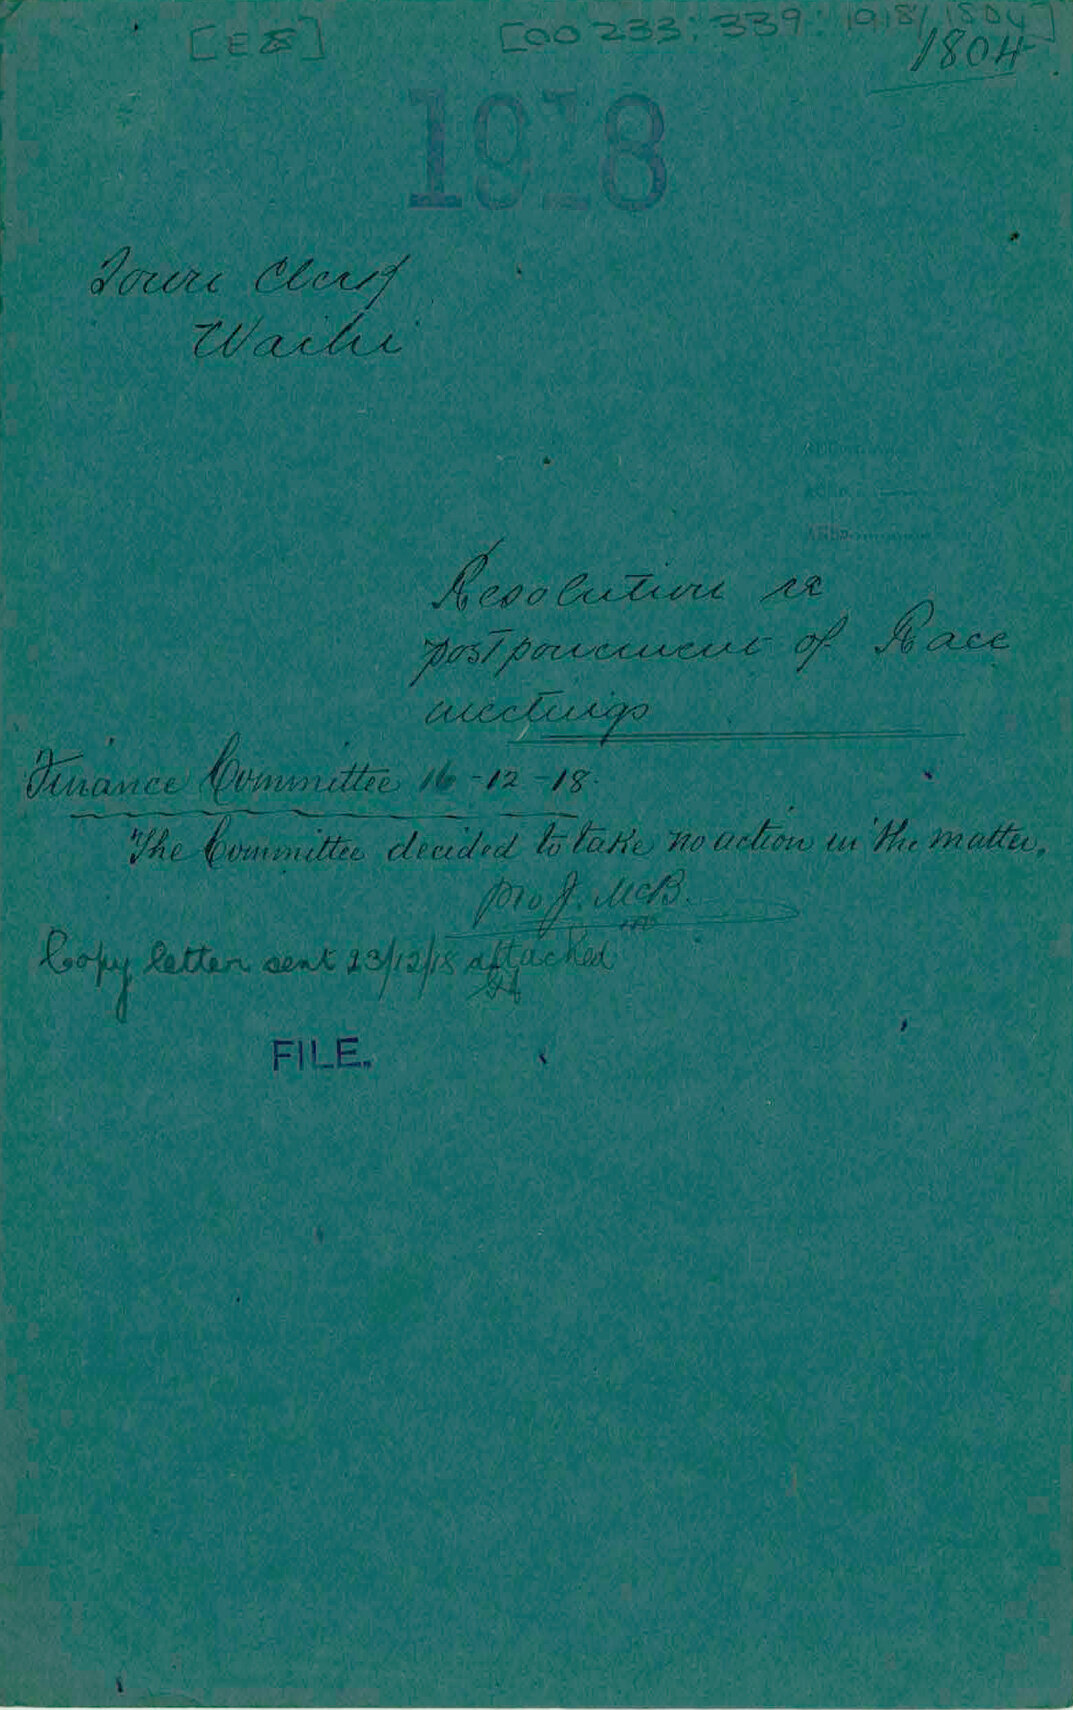 [E8]
[00233:339:1918/1804]
1804
1918
Town Clerk
Waihi
Resolution re
postponement of Race
meetings
Finance Committee 16-12-18.
The Committee decided to take no action in the matter.
pro J. McB.
Copy letter sent 23/12/18 attached
FILE.